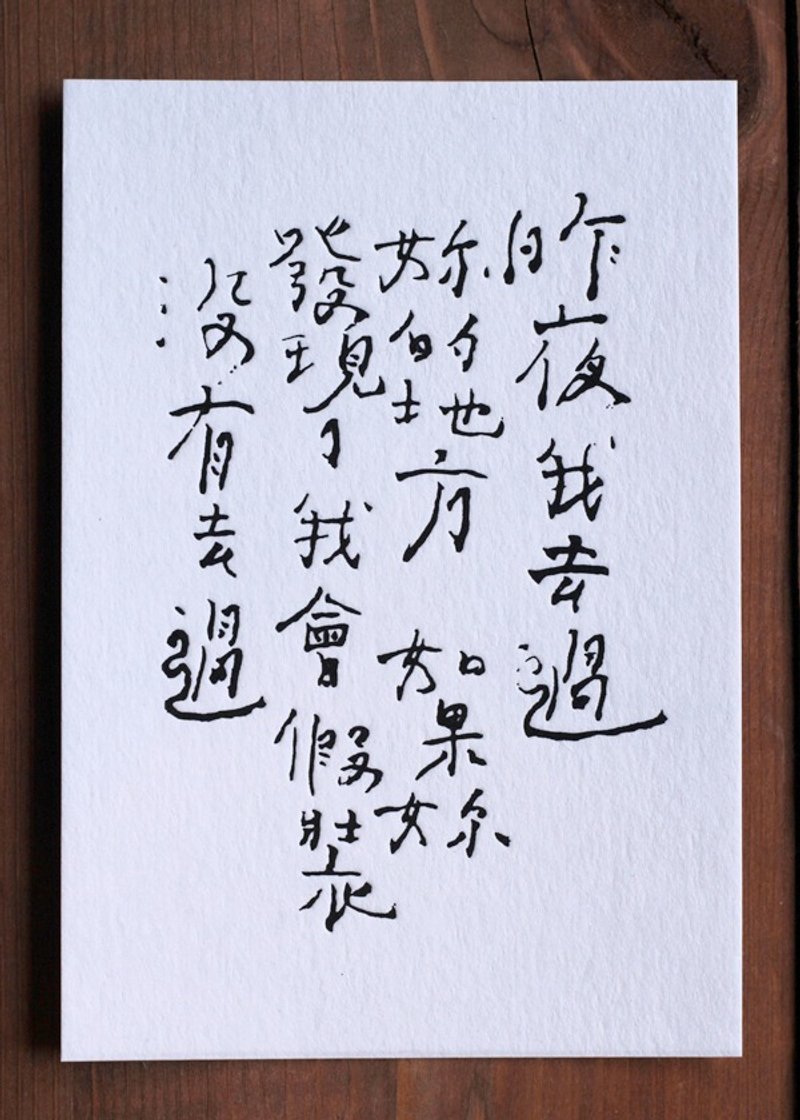 昨夜我去過
妳的地方 如果妳
發現了我會假裝
沒有去過